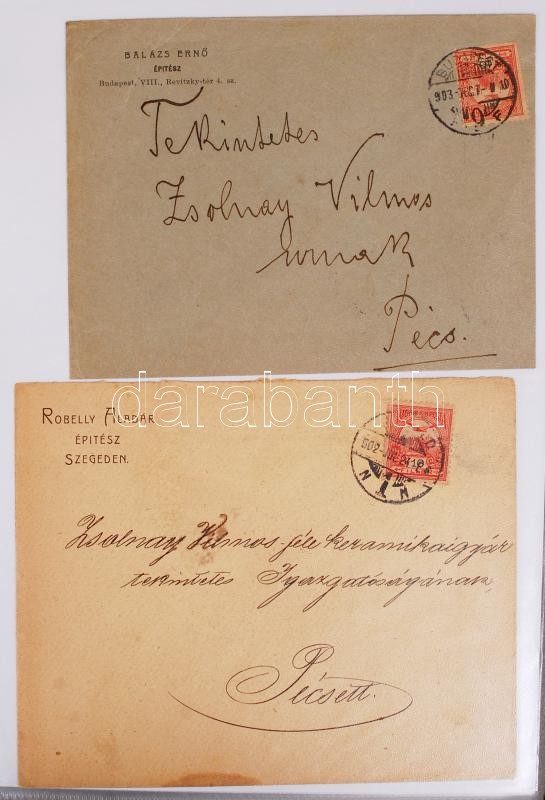 BALÁZS ERNŐ
ÉPITÉSZ
Budapest, VIII., Revitzky-tér 4. sz.
BUDAPEST
Tekintetes
Zsolnay Vilmos
urnak
Pécs.
darabanth
ROBELLY ALADÁR
ÉPITÉSZ
SZEGEDEN.
Zsolnay Vilmos-féle keramikaigyár
tekintetes Igazgatóságának
Pécsett.